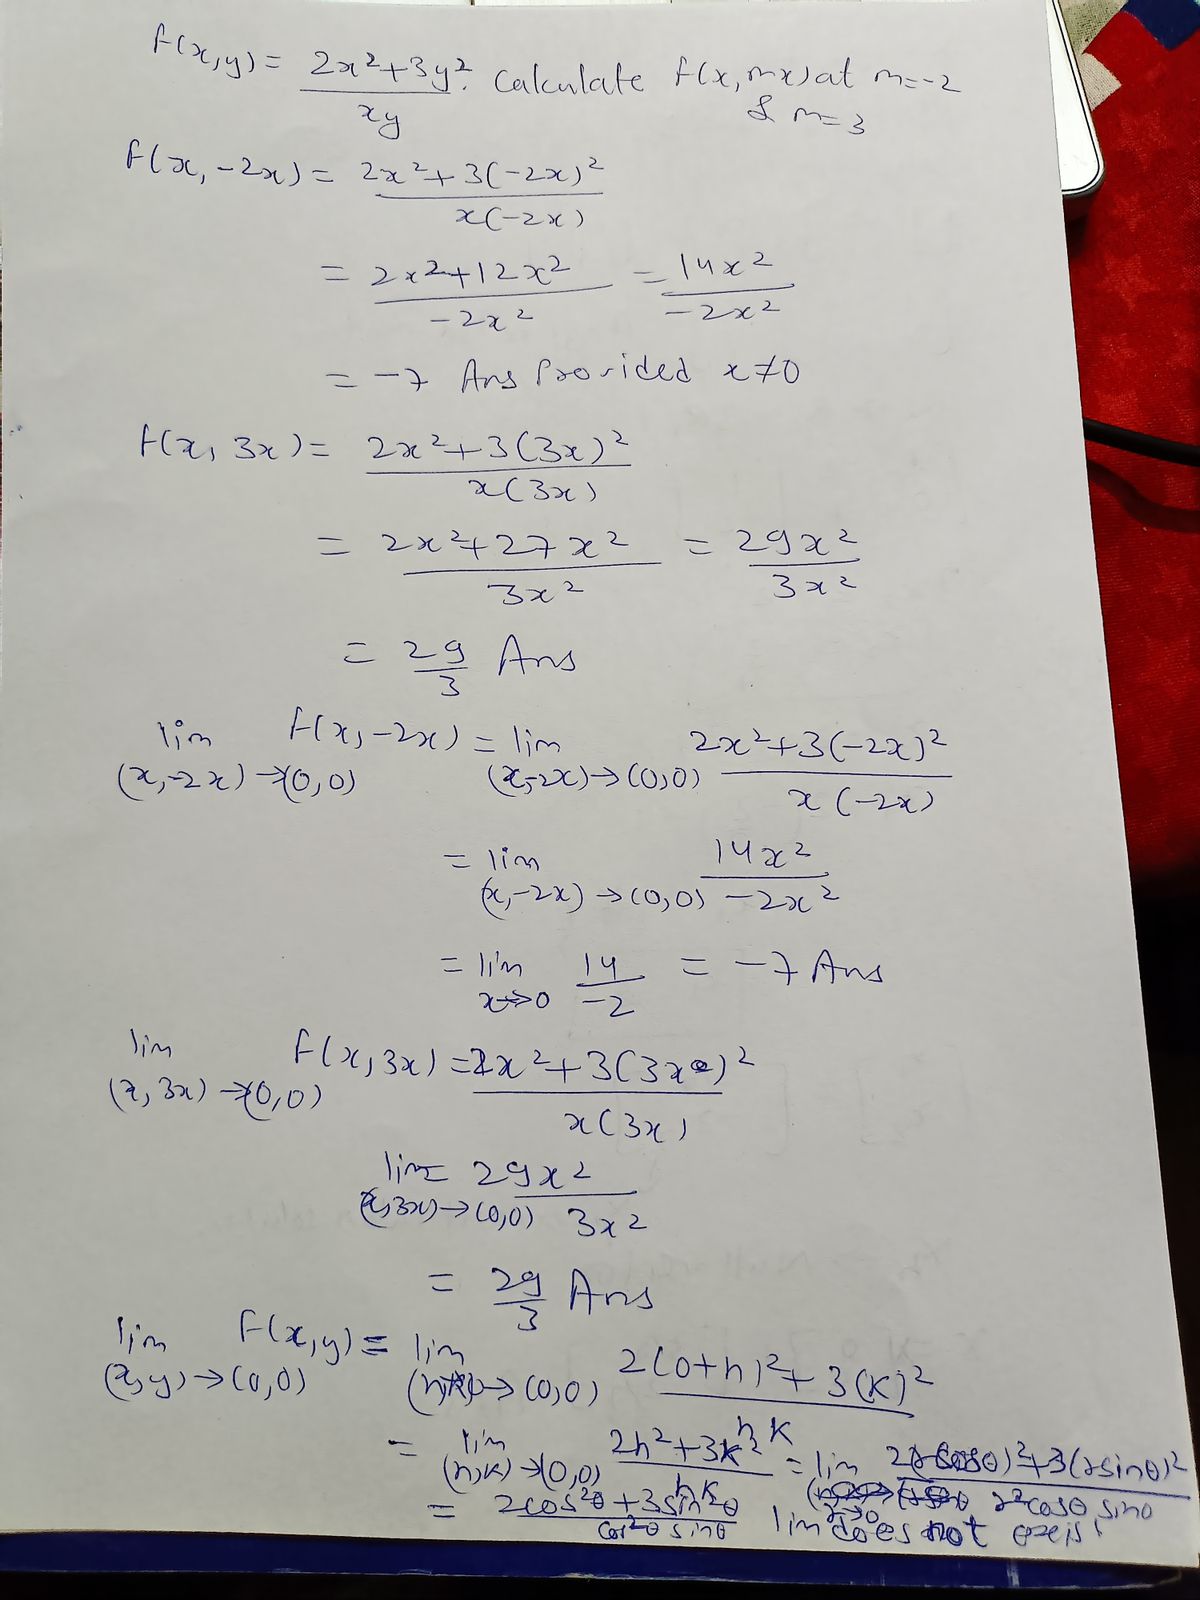 f(x,y) = (2x²+3y²)/(xy). Calculate f(x,mx) at m=-2
& m=3
f(x,-2x) = (2x²+3(-2x)²)/(x(-2x))
= (2x²+12x²)/(-2x²) = 14x²/(-2x²)
= -7 Ans Provided x≠0
f(x, 3x) = (2x²+3(3x)²)/(x(3x))
= (2x²+27x²)/(3x²) = 29x²/(3x²)
= 29/3 Ans
lim (x,-2x)→(0,0) f(x,-2x) = lim (x,-2x)→(0,0) (2x²+3(-2x)²)/(x(-2x))
= lim (x,-2x)→(0,0) 14x²/(-2x²)
= lim x→0 14/(-2) = -7 Ans
lim (x,3x)→(0,0) f(x,3x) = (2x²+3(3x)²)/(x(3x))
lim = (x,3x)→(0,0) 29x²/(3x²)
= 29/3 Ans
lim (x,y)→(0,0) f(x,y) = lim (h,k)→(0,0) (2(0+h)²+3(k)²)/(hk)
= lim (h,k)→(0,0) (2h²+3k²)/(hk) = lim r→0 (2(rcosθ)²+3(rsinθ)²)/(r²cosθ sinθ)
= (2cos²θ+3sin²θ)/(cos²θ sinθ) lim does not exist